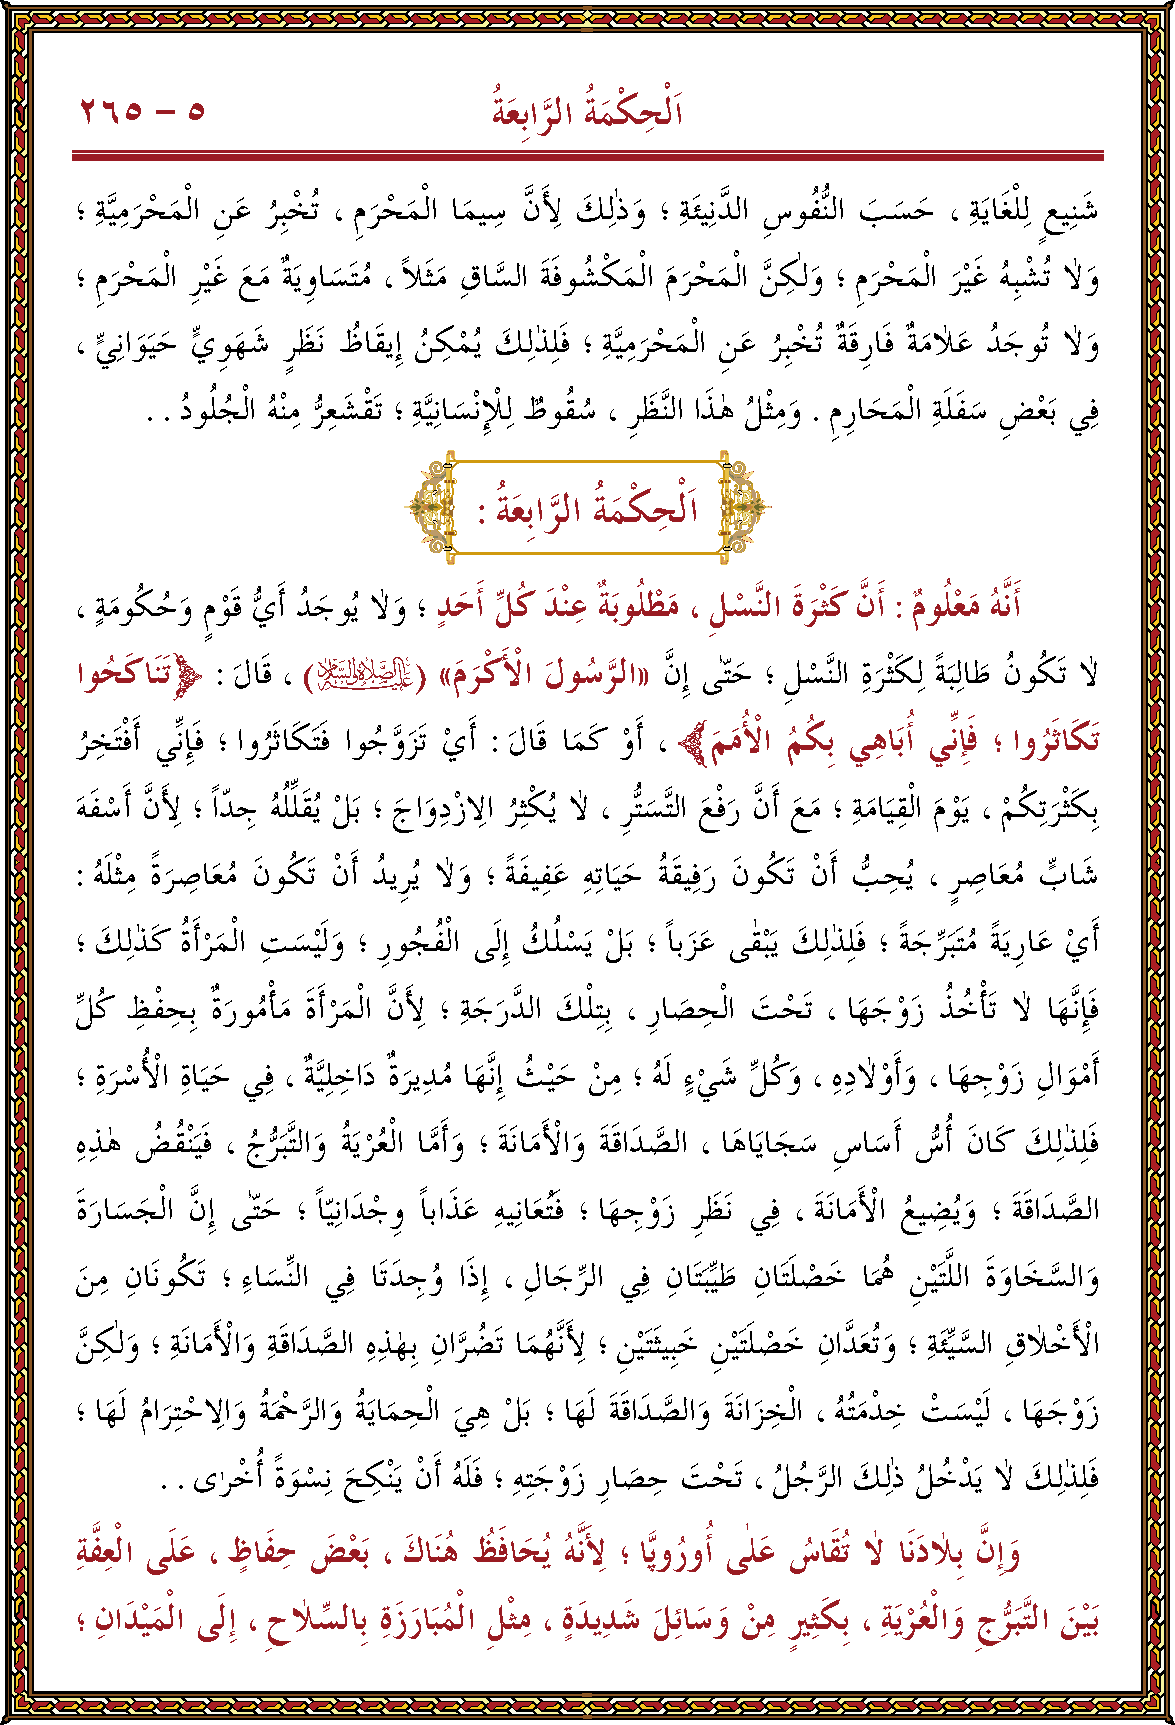 اَلْحِكْمَةُ الرَّابِعَةُ ٥ – ٢٦٥
شَنِيعٍ لِلْغَايَةِ ، حَسَبَ النُّفُوسِ الدَّنِيئَةِ ؛ وَذٰلِكَ لِأَنَّ سِيمَا الْمَحْرَمِ ، تُخْبِرُ عَنِ الْمَحْرَمِيَّةِ ؛
وَلاٰ تُشْبِهُ غَيْرَ الْمَحْرَمِ ؛ وَلٰكِنَّ الْمَحْرَمَ الْمَكْشُوفَةَ السَّاقِ مَثَلاً ، مُتَسَاوِيَةٌ مَعَ غَيْرِ الْمَحْرَمِ ؛
وَلاٰ تُوجَدُ عَلاٰمَةٌ فَارِقَةٌ تُخْبِرُ عَنِ الْمَحْرَمِيَّةِ ؛ فَلِذٰلِكَ يُمْكِنُ إِيقَاظُ نَظَرٍ شَهَوِيٍّ حَيَوَانِيٍّ ،
فِي بَعْضِ سَفَلَةِ الْمَحَارِمِ . وَمِثْلُ هٰذَا النَّظَرِ ، سُقُوطٌ لِلْإِنْسَانِيَّةِ ؛ تَقْشَعِرُّ مِنْهُ الْجُلُودُ . .
اَلْحِكْمَةُ الرَّابِعَةُ :
أَنَّهُ مَعْلُومٌ : أَنَّ كَثْرَةَ النَّسْلِ ، مَطْلُوبَةٌ عِنْدَ كُلِّ أَحَدٍ ؛ وَلاٰ يُوجَدُ أَيُّ قَوْمٍ وَحُكُومَةٍ ،
لاٰ تَكُونُ طَالِبَةً لِكَثْرَةِ النَّسْلِ ؛ حَتّٰى إِنَّ «الرَّسُولَ الْأَكْرَمَ» (عَلَيْهِ الصَّلَاةُ وَالسَّلَامُ) ، قَالَ : ﴿تَنَاكَحُوا
تَكَاثَرُوا ؛ فَإِنِّي أُبَاهِي بِكُمُ الْأُمَمَ﴾ ، أَوْ كَمَا قَالَ : أَيْ تَزَوَّجُوا فَتَكَاثَرُوا ؛ فَإِنِّي أَفْتَخِرُ
بِكَثْرَتِكُمْ ، يَوْمَ الْقِيَامَةِ ؛ مَعَ أَنَّ رَفْعَ التَّسَتُّرِ ، لاٰ يُكْثِرُ الِازْدِوَاجَ ؛ بَلْ يُقَلِّلُهُ جِدّاً ؛ لِأَنَّ أَسْفَهَ
شَابٍّ مُعَاصِرٍ ، يُحِبُّ أَنْ تَكُونَ رَفِيقَةُ حَيَاتِهِ عَفِيفَةً ؛ وَلاٰ يُرِيدُ أَنْ تَكُونَ مُعَاصِرَةً مِثْلَهُ :
أَيْ عَارِيَةً مُتَبَرِّجَةً ؛ فَلِذٰلِكَ يَبْقٰى عَزَباً ؛ بَلْ يَسْلُكُ إِلَى الْفُجُورِ ؛ وَلَيْسَتِ الْمَرْأَةُ كَذٰلِكَ ؛
فَإِنَّهَا لاٰ تَأْخُذُ زَوْجَهَا ، تَحْتَ الْحِصَارِ ، بِتِلْكَ الدَّرَجَةِ ؛ لِأَنَّ الْمَرْأَةَ مَأْمُورَةٌ بِحِفْظِ كُلِّ
أَمْوَالِ زَوْجِهَا ، وَأَوْلاٰدِهِ ، وَكُلِّ شَيْءٍ لَهُ ؛ مِنْ حَيْثُ إِنَّهَا مُدِيرَةٌ دَاخِلِيَّةٌ ، فِي حَيَاةِ الْأُسْرَةِ ؛
فَلِذٰلِكَ كَانَ أُسُّ أَسَاسِ سَجَايَاهَا ، الصَّدَاقَةَ وَالْأَمَانَةَ ؛ وَأَمَّا الْعُرْيَةُ وَالتَّبَرُّجُ ، فَيَنْقُضُ هٰذِهِ
الصَّدَاقَةَ ؛ وَيُضِيعُ الْأَمَانَةَ ، فِي نَظَرِ زَوْجِهَا ؛ فَتُعَانِيهِ عَذَاباً وِجْدَانِيّاً ؛ حَتّٰى إِنَّ الْجَسَارَةَ
وَالسَّخَاوَةَ اللَّتَيْنِ هُمَا خَصْلَتَانِ طَيِّبَتَانِ فِي الرِّجَالِ ، إِذَا وُجِدَتَا فِي النِّسَاءِ ؛ تَكُونَانِ مِنَ
الْأَخْلاٰقِ السَّيِّئَةِ ؛ وَتُعَدَّانِ خَصْلَتَيْنِ خَبِيثَتَيْنِ ؛ لِأَنَّهُمَا تَضُرَّانِ بِهٰذِهِ الصَّدَاقَةِ وَالْأَمَانَةِ ؛ وَلٰكِنَّ
زَوْجَهَا ، لَيْسَتْ خِدْمَتُهُ ، الْخِزَانَةَ وَالصَّدَاقَةَ لَهَا ؛ بَلْ هِيَ الْحِمَايَةُ وَالرَّحْمَةُ وَالِاحْتِرَامُ لَهَا ؛
فَلِذٰلِكَ لاٰ يَدْخُلُ ذٰلِكَ الرَّجُلُ ، تَحْتَ حِصَارِ زَوْجَتِهِ ؛ فَلَهُ أَنْ يَنْكِحَ نِسْوَةً أُخْرٰى . .
وَإِنَّ بِلاٰدَنَا لاٰ تُقَاسُ عَلٰى أُورُوپَّا ؛ لِأَنَّهُ يُحَافَظُ هُنَاكَ ، بَعْضَ حِفَاظٍ ، عَلَى الْعِفَّةِ
بَيْنَ التَّبَرُّجِ وَالْعُرْيَةِ ، بِكَثِيرٍ مِنْ وَسَائِلَ شَدِيدَةٍ ، مِثْلِ الْمُبَارَزَةِ بِالسِّلاٰحِ ، إِلَى الْمَيْدَانِ ؛